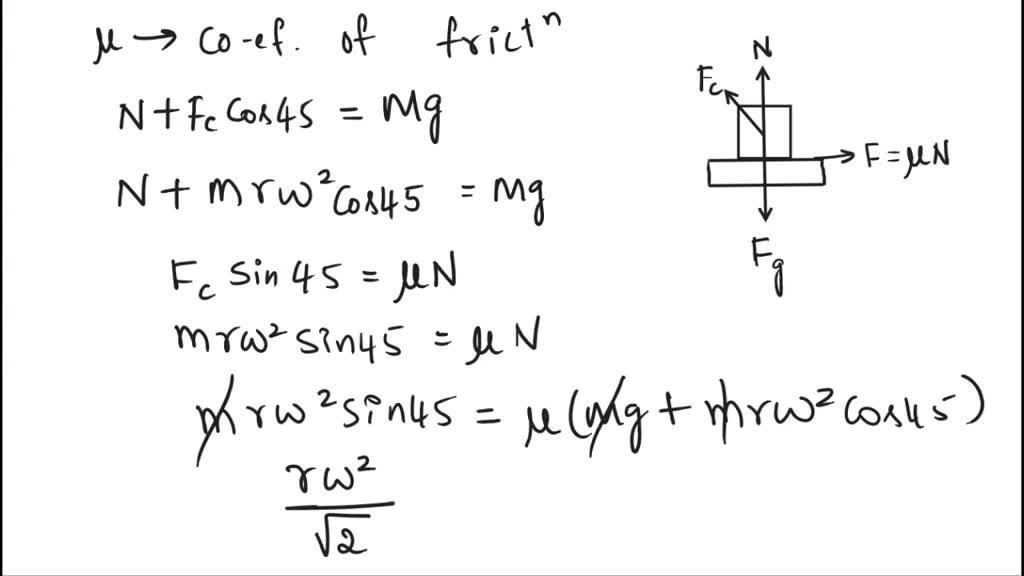 μ → Co-ef. of frictⁿ
N + Fc Cos45 = Mg
N + mrω² Cos45 = Mg
Fc Sin 45 = μN
mrω² Sin45 = μN
mrω² Sin45 = μ(mg + mrω² Cos45)
rω²
√2
N
Fc
F = μN
Fg